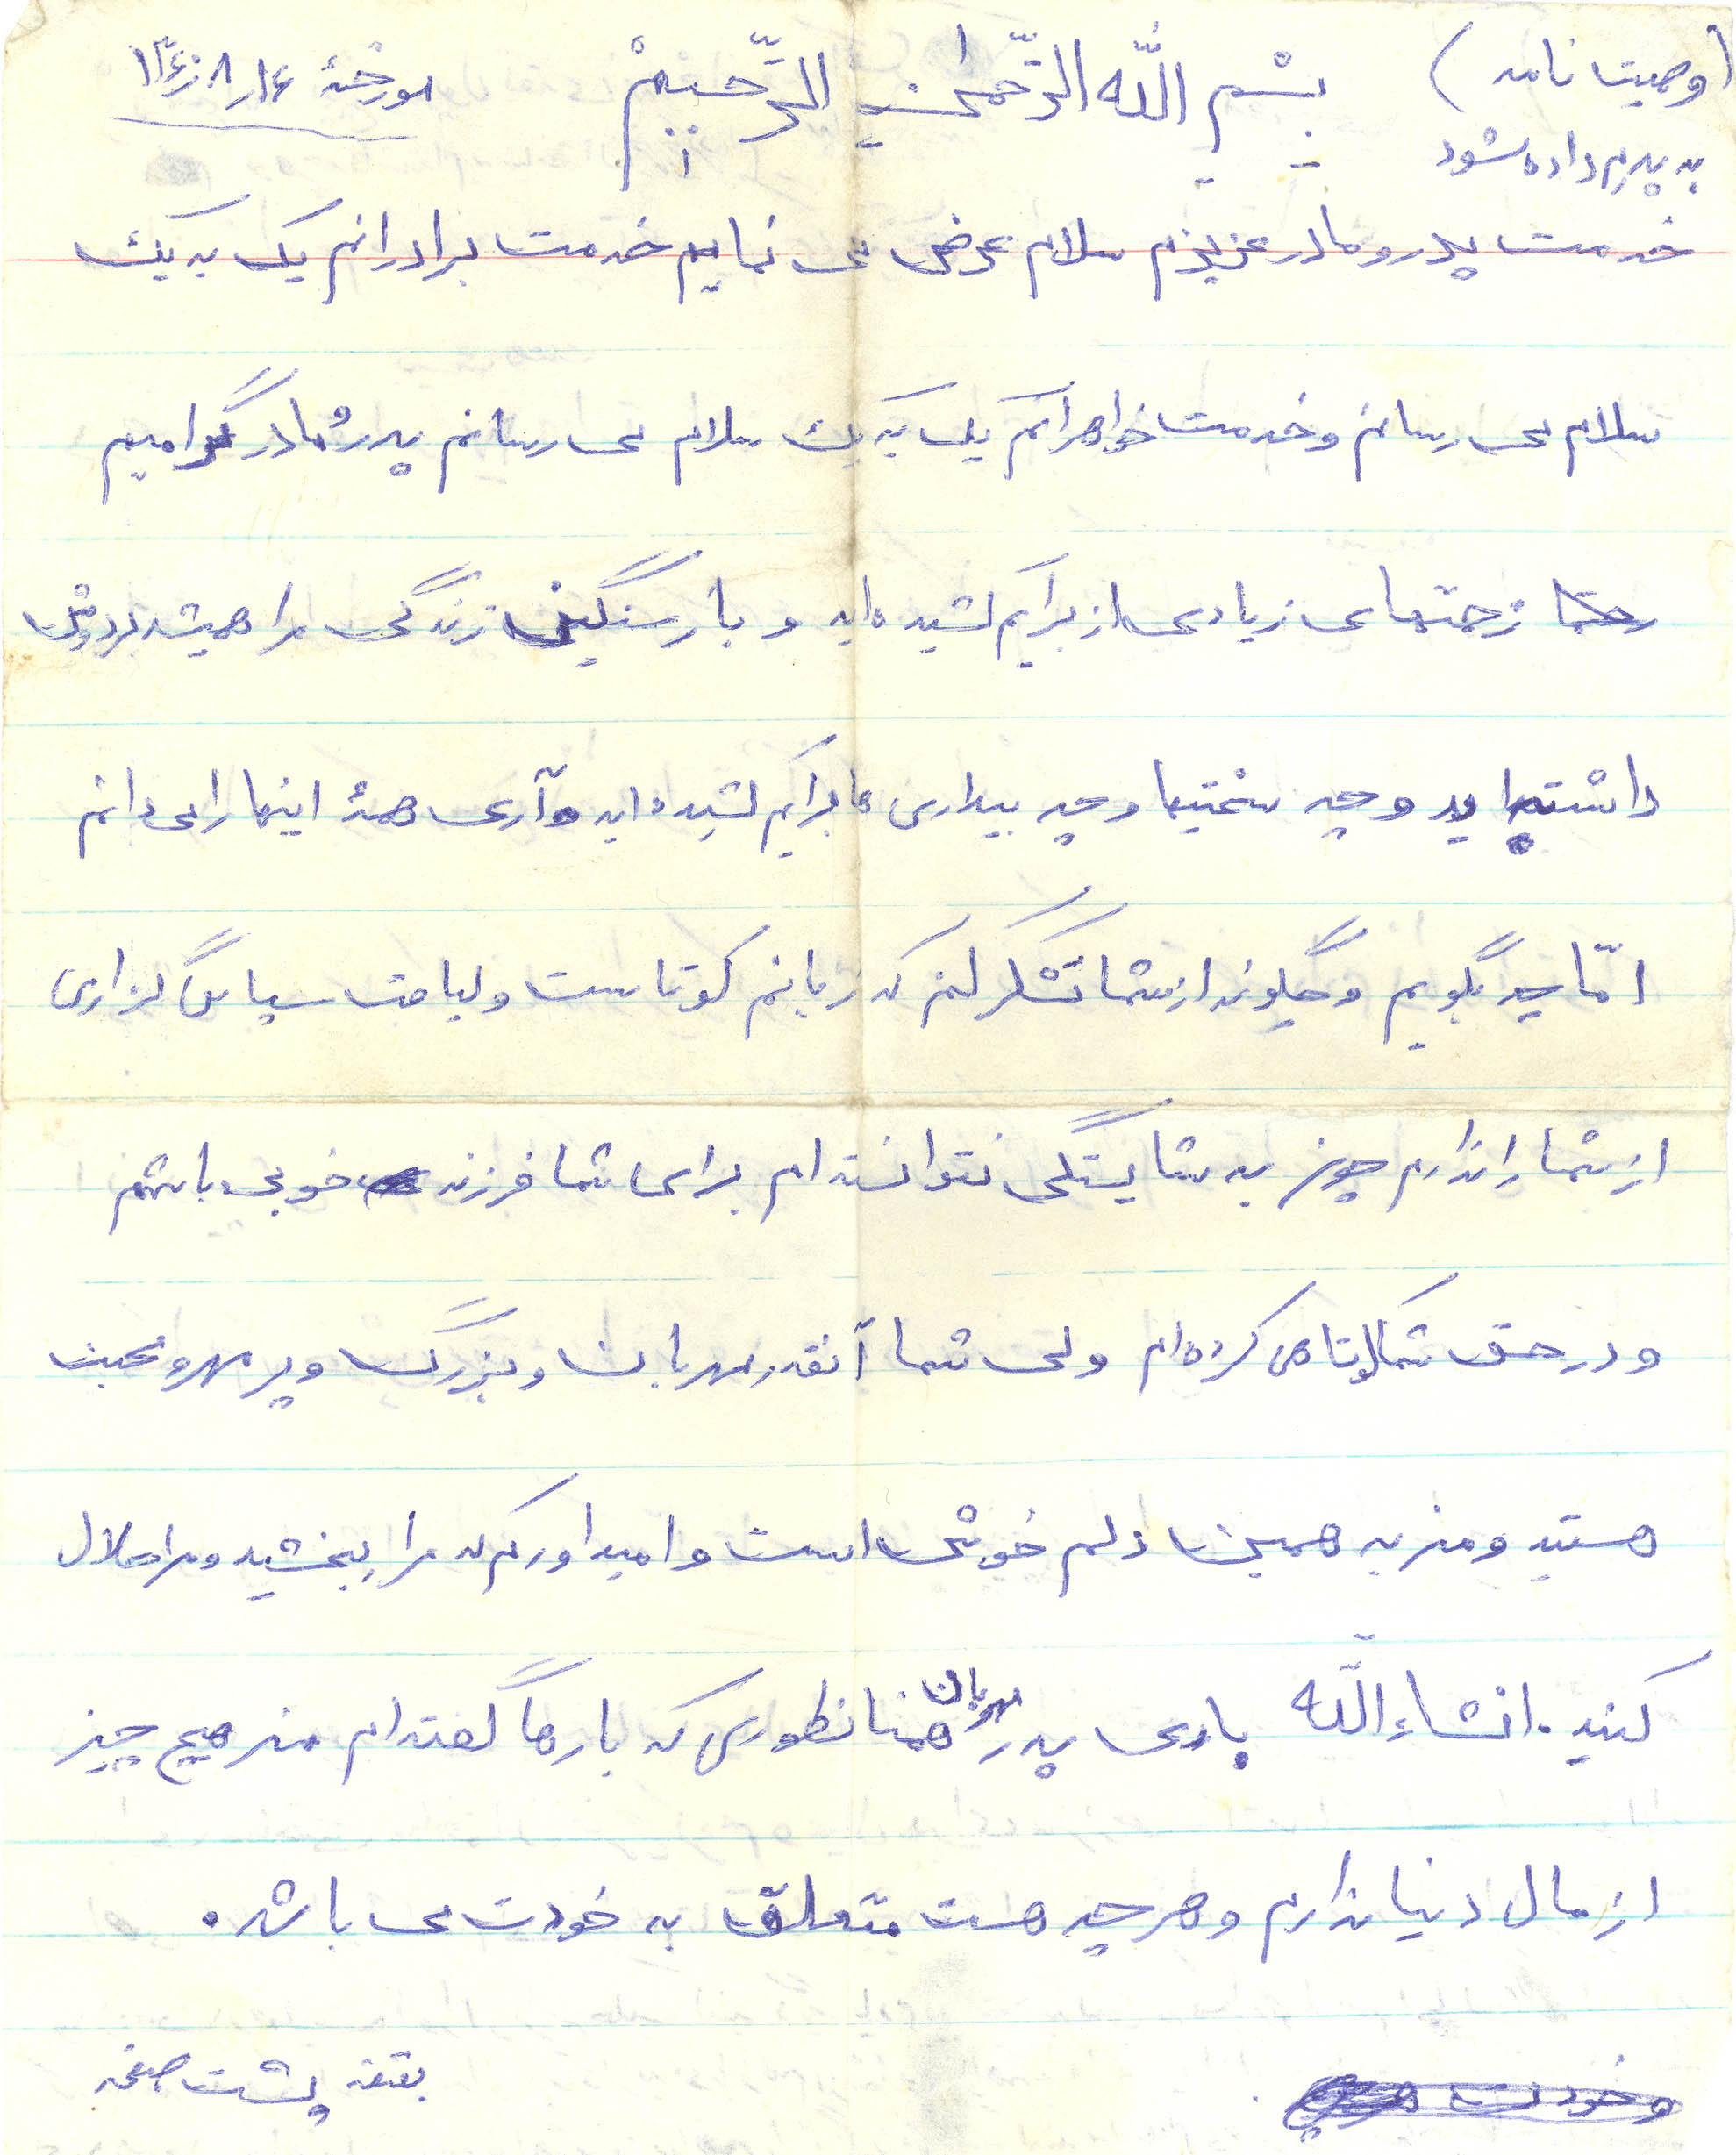 (وصیت نامه) بِسْمِ اللّٰه الرَّحمٰنِ الرَّحیمْ مورخهٔ ۱۳۶۰/۸/۱۶
به پدرم داده شود
خدمت پدر و مادر عزیزم سلام عرض می نمایم خدمت برادرانم یک به یک
سلام می رسانم و خدمت خواهرانم یک به یک سلام می رسانم پدر و مادر گرامیم
زحمتهای زیادی از برایم کشیده اید و بار سنگین زندگی مرا همیشه بردوش
داشته اید و چه سختیها و چه بیداری ها برایم کشیده اید و آری همهٔ اینها را می دانم
امّا چه بگویم و چگونه از شما تشکر کنم که زبانم کوتاست و لیاقت سپاس گزاری
از شما را ندارم چون به شایستگی نتوانسته ام برای شما فرزند خوبی باشم
و در حق شما کوتاهی کرده ام ولی شما آنقدر مهربان و بزرگ و پر مهر و محبت
هستید و من به همین دلم خوش است و امیداورم که مرا ببخشید و مرا حلال
کنید. انشاءاللّٰه باری پدر مهربان همنانطوری که بارها گفته ام من هیچ چیز
از مال دنیا ندارم و هر چه هست متعلق به خودت می باشد.
وخودت
بقیه پشت صفحه